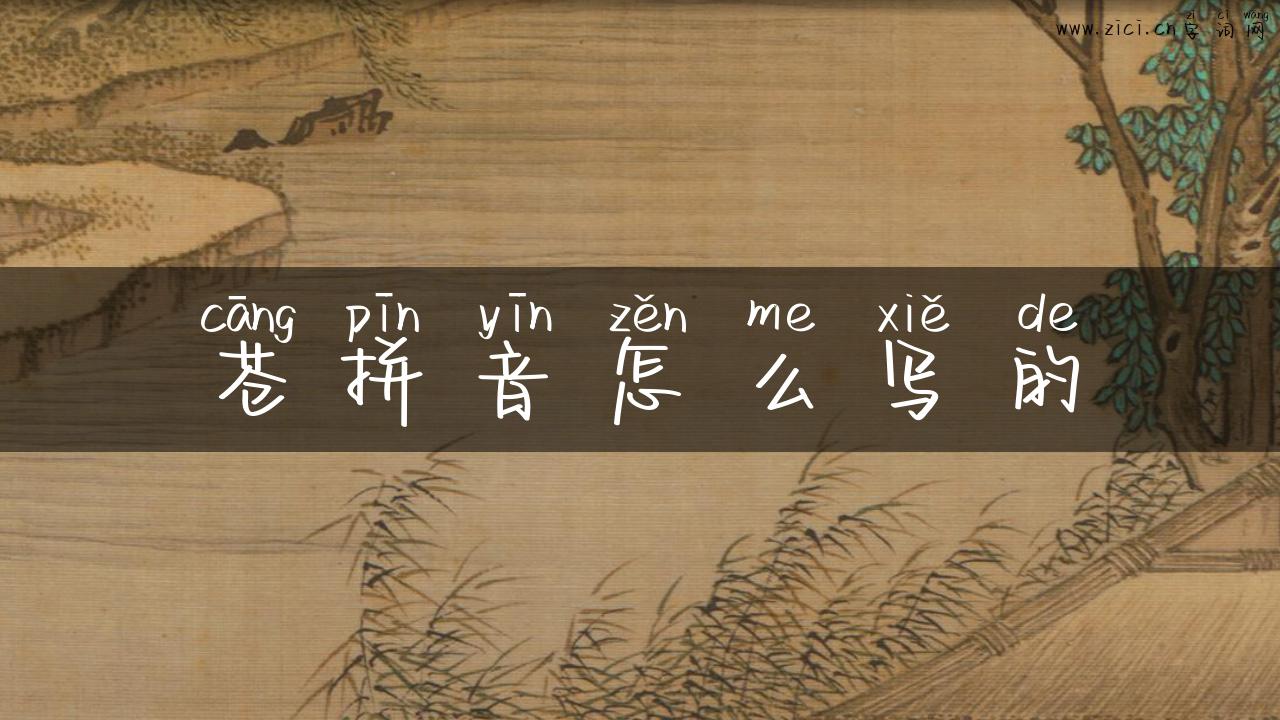 zì cí wǎng
www.zici.cn字词网
cāng pīn yīn zěn me xiě de
苍拼音怎么写的